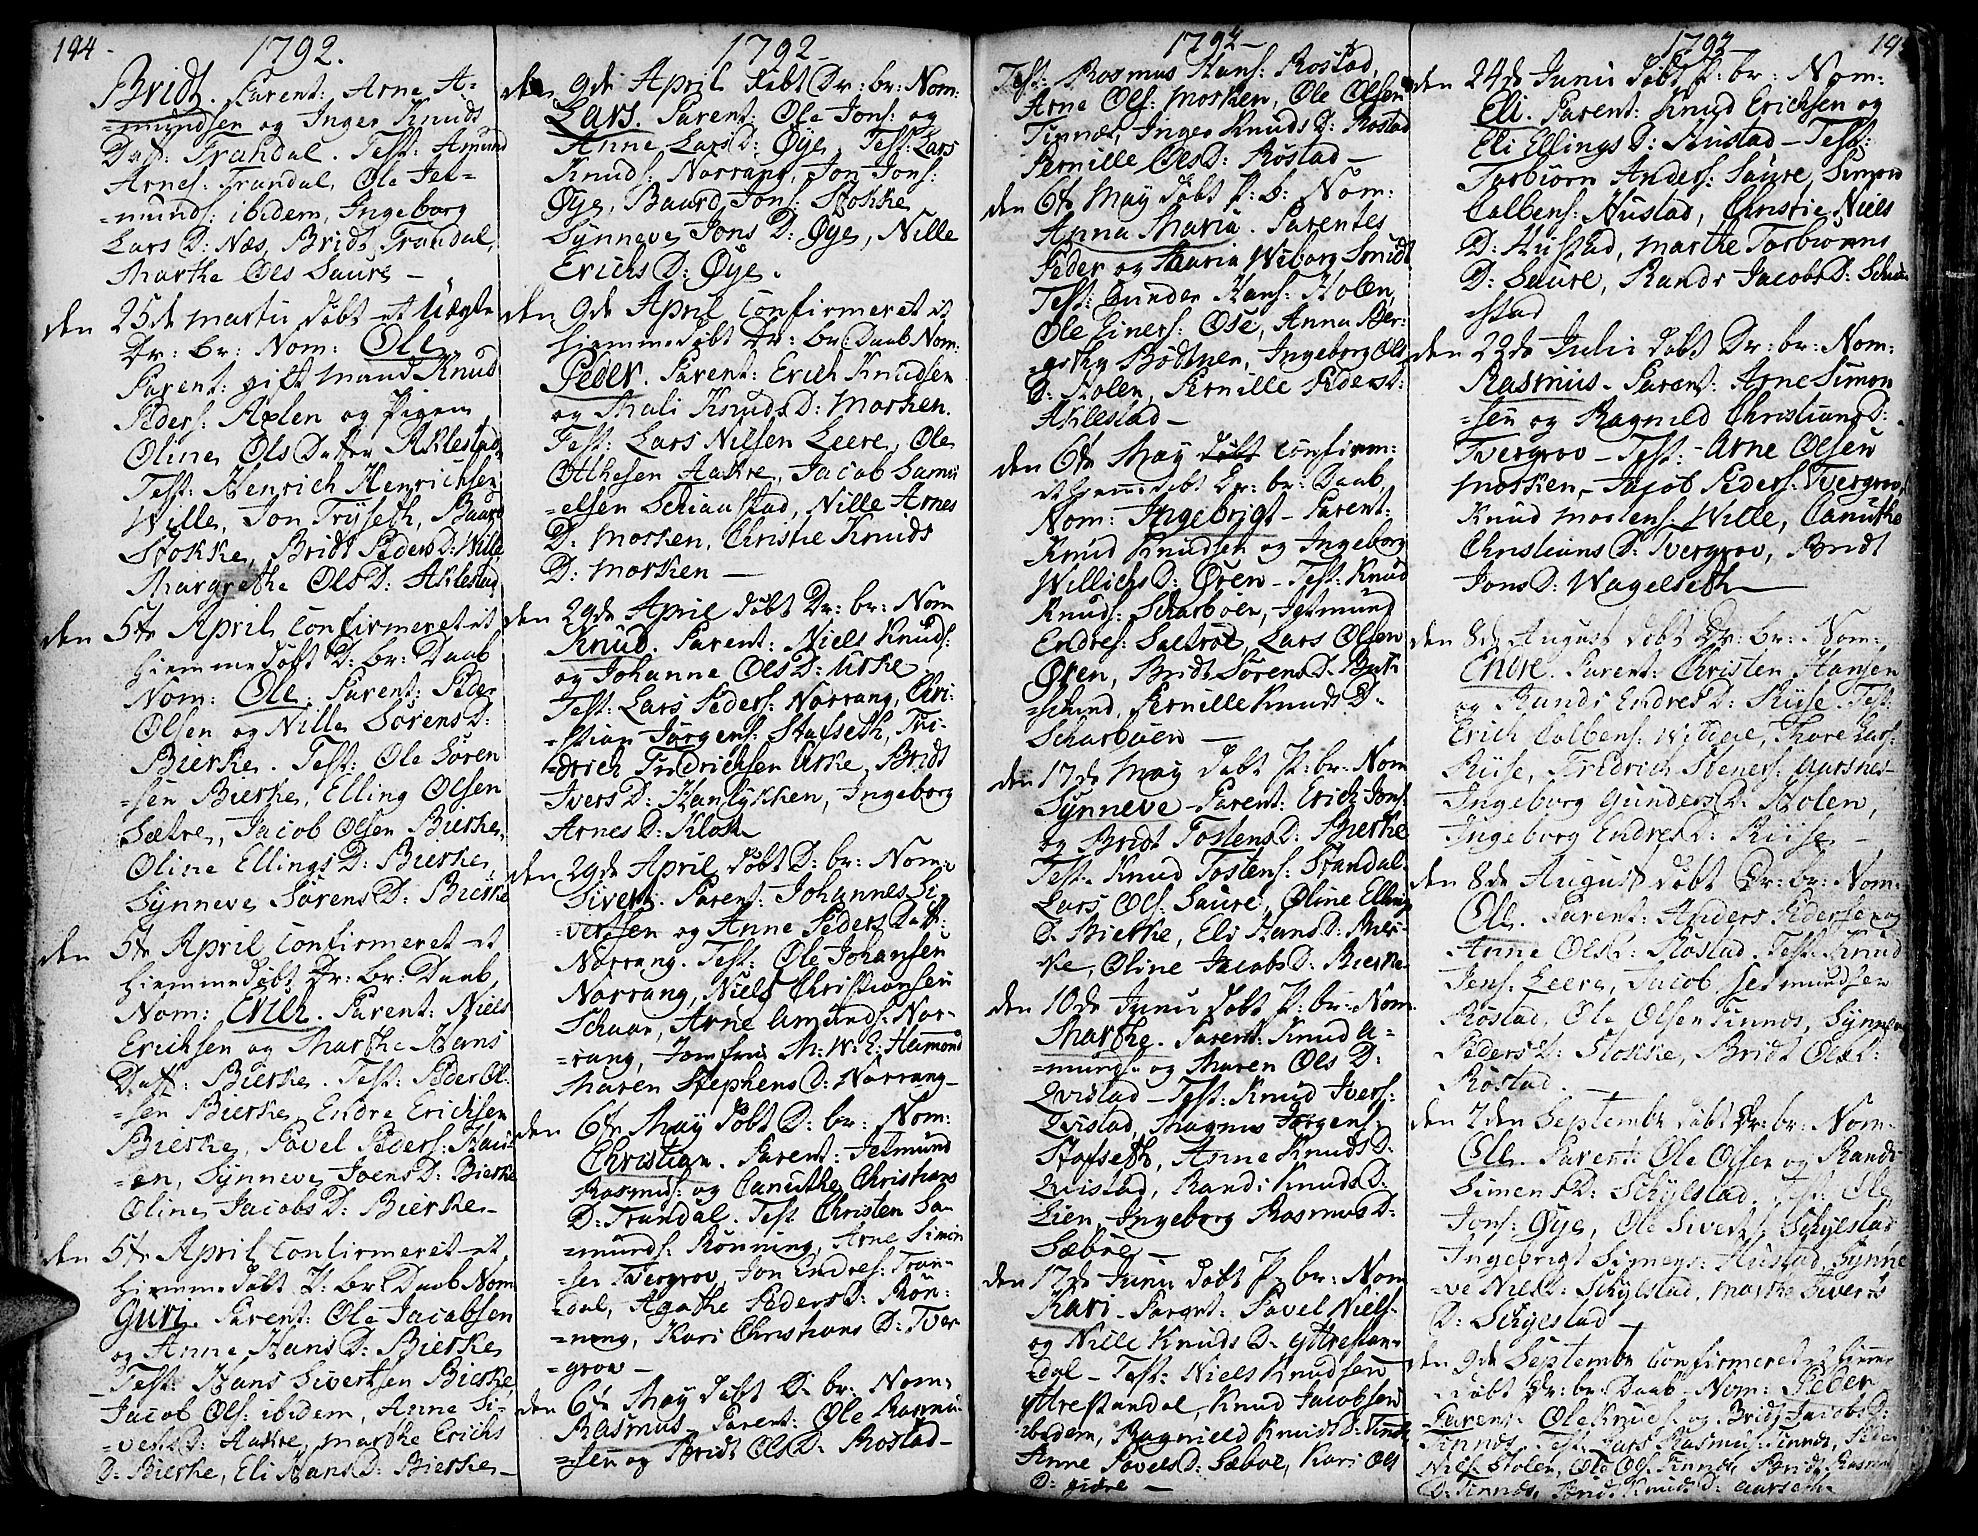 194 -
1792.
Bridt. Parent: Arne A-
=mundsen og Inger Knuds
Datt: Trandal. Test: Amund
Arnes: Trandal, Ole Jet-
=munds: ibidem, Ingeborg
Lars D: Næs, Bridt Trandal,
Marthe Ols Saure -
den 25de Martii døbt et Uægte
Dr: br: Nom: Ole
Parent: gift Mand Knud
Peders: Aslen og Pigen
Oline Ols Datter Aklestad,
Test: Henrich Henrichsen
Wille, Jon Tryseth, Baard
Stokke, Bridt Peders D: Wille
Margrethe Ols D: Aklestad
den 5te April Confirmeret et
hiemmedøbt D: br: Daab
Nom: Ole. Parent: Peder
Olsen og Nille Sørens D:
Bierke. Test: Ole Søren
=sen Bierke, Elling Olsen
Sætre, Jacob Olsen Bierke,
Oline Ellings D: Bierke
Synneve Sørens D: Bierke
den 5te April Confirmeret et
hiemmedøbt Dr: br: Daab
Nom: Erich. Parent: Niels
Erichsen og Marthe Hans
Datt: Bierke. Test: Peder Ol-
=sen Bierke, Endre Erichsen
Bierke, Pavel Peders: Haus
=en, Synneve Joens D: Bierke
Oline Jacobs D: Bierke -
den 5te April Confirmeret et
hiemmedøbt P: br: Daab Nom
Guri. Parent: Ole Jacobsen
og Anne Hans D: Bierke
Test: Hans Sivertsen Bierke,
Jacob Ols: ibidem, Anne Si-
=vers D: Aakre, Marthe Erichs
D: Bierke, Eli Hans D: Bierke -
1792
den 9de April døbt Dr: br: Nom:
Lars. Parent: Ole Jons: og
Anne Lars D: Øye, Test: Lars
Knuds: Norrang, Jon Jons:
Øye, Baard Jons: Stokke
Synneve Jons D: Øye, Nille
Erichs D: Øye.
den 9de April Confirmeret et
hiemmedøbt Dr: br: Daab Nom:
Peder. Parent: Erich Knudsen
og Mali Knuds D: Morken.
Test: Lars Nilsen Leere, Ole
Otthesen Aakre, Jacob Samu
=elsen Schiaastad, Nille Arnes
D: Morken, Christie Knuds
D: Morken -
den 29de April døbt Dr: br: Nom
Knud. Parent: Niels Knuds:
og Johanne Ols D: Urke
Test: Lars Peders: Norrang, Chri-
=stian Jørgens: Stafseth, Fri-
=drich Fridrichsen Urke, Bridt
Ivers D: Hanlykken, Ingeborg
Arnes D: Klok
den 29de April døbt D: br: Nom:
Sivert. Parent: Johannes Si
=vertsen og Anne Peders Datt:
Norrang. Test: Ole Johansen
Norrang, Niels Christiansen
Schaar, Arne Amunds: Nor-
=rang, Jomfrue M: W: E: Heimond
Maren Stephens D: Norrang -
den 6te May døbt D: br: Nom:
Christian. Parent: Jetmund
Rasmus: og Canuthe Christians
D: Trandal. Test: Christen Sa-
=munds: Rønning, Arne Simon
=sen Tvergrov, Jon Endres: Tran-
=dal, Agathe Peders D: Røn-
=nong, Kari Christians D: Tver
=grov -
den 6te May døbt D: br: Nom:
Rasmus. Parent: Ole Rasmu
=sen og Bridt Ols D: Rostad -
1792 -
Test: Rasmus Hans: Rostad,
Arne Ols: Morken, Ole Olsen
Tinnæs, Inger Knuds D: Rostad
Pernille Ols D: Rostad -
den 6te May døbt P: b: Nom:
Anna Maria. Parentes
Peder og Maria Wiborg Smidt
Test: Gunder Hans: Holen,
Ole Einers: Ose, Anna Ber-
=gethe Bødtner, Ingeborg Ols
D: Holen, Pernille Peders D:
Aklestad -
den 6te May døbt Confirm:
et hiemmedøbt Dr: br: Daab
Nom: Ingebrigt - Parent:
Knud Knudsen og Ingeborg
Willichs D: Øren - Test: Knud
Knuds: Scharbøen, Jetmund
Endres: Sætrøe, Lars Olsen
Øren, Bridt Sørens D:
=schund, Pernille Knuds D:
Scharbøen -
den 17de May døbt P: br: Nom
Synneve - Parent: Erich Jons:
og Bridt Tostens D: Bierke
Test: Knud Tostens: Standal
Lars Ols: Saure, Oline Elling
D: Bierke, Eli Hans D: Bier-
ke, Oline Jacobs D: Bierke -
den 10de Junii døbt P: br: Nom
Marthe. Parent: Knud A-
=munds: og Maren Ols D:
Qvistad - Test: Knud Ivers:
Qvistad, Magnus Jørgens:
Stafseth, Anne Knuds D:
Qvistad, Randi Knuds D:
Lien, Ingeborg Rasmus D:
Sæbøe -
den 17de Junii døbt P: br: Nom
Kari - Parent: Pavel Niels-
og Nille Knuds D: Ytrestan-
=dal - Test: Niels Knudsen
Ytrestandal, Knud Jacobsen
ibidem, Ragnild Knuds D:
Anne Povels D: Sæbøe, Kari Ols
D: -
1792
den 24de Junii døbt P: br: Nom:
Eli. Parent: Knud Erichsen og
Eli Ellings D: Hustad - Test:
Torbiørn Anders: Saure, Simon
Colbens: Hustad, Christie Niels
D: Hustad, Marthe Torbiørns
D: Saure, Randi Jacobs D: Schaa
=stad
den 22de Julii døbt Dr: br: Nom:
Rasmus. Parent: Arne Simon
=sen og Ragnild Christians D:
Tvergrov - Test: Arne Olsen
Morken, Jacob Peders: Tvergrov,
Knud Mortens: Wille, Canuthe
Christians D: Tvergrov, Bridt
Jons D: Wagelseth -
den 8de August døbt Dr: br: Nom:
Endre. Parent: Christen Hansen
og Randi Endres D: Riise. Test:
Erich Colbens: Widdøe, Thore Lars:
Riise, Fredrich Steners: Aursnes -
Ingeborg Gunders D: Holen,
Ingeborg Endres D: Riise -
den 8de August døbt Dr: br: Nom:
Ole. Parent: Anders Pedersen og
Anne Ols D: Rostad. Test: Knud
Jens: Leere, Jacob Jetmundsen
Rostad, Ole Olsen Tinnes, Synneve
Peders D: Stokke, Bridt Ols D:
Rostad. -
den 2den September døbt Dr: br: Nom.
Ole. Parent: Ole Olsen og Randi
Simens D: Schylstad. Test: Ole
Jons: Øye, Ole Siverts: Schylstad
Ingebrigt Simens: Hustad, Synne
=ve Niels D: Schylstad, Marthe Siverts
D: Schylstad -
den 9de September Confirmeret et hiem
døbt Dr: br: Daab - Nom: Peder
Parent: Ole Knuds: og Bridt Jacobs D:
Tinnes, Test: Lars Rasmus: Tinnes, Peder
Niels: Holen, Ole Ols: Tinnes, Bridt Rasmus
D: Tinnes, Knuds D: Aurseth